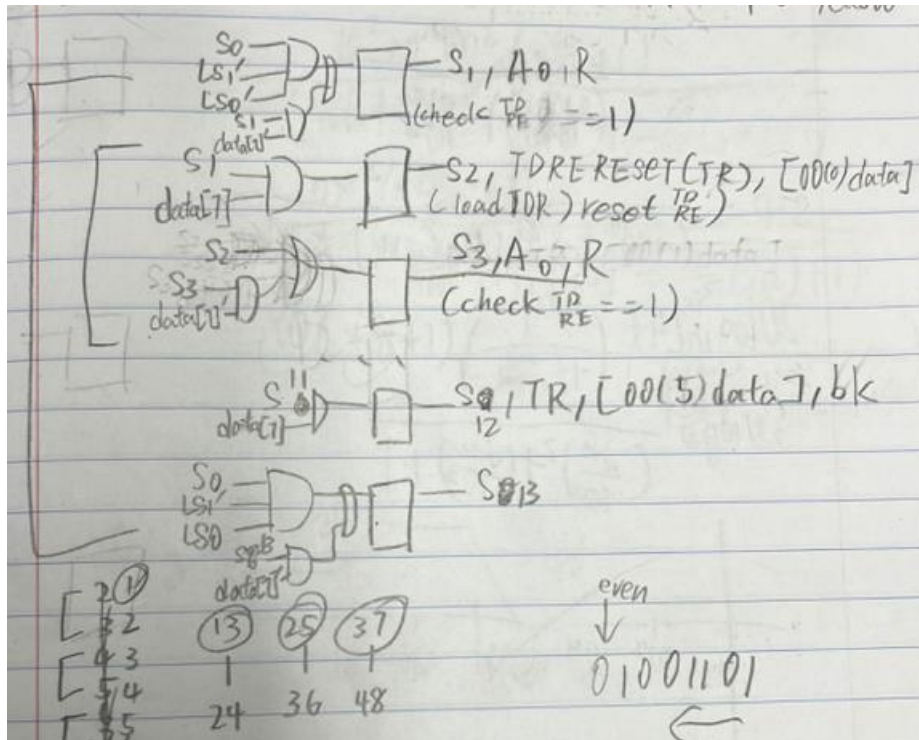 S0
LS1'
LS0'
S1
data[7]'
S1, A0, R
(check TDRE == 1)
S1
data[7]
S2, TDRE RESET(TR), [00(0)data]
(load TDR) reset TDRE)
S2
S3
data[7]'
S3, A0, R
(check TDRE == 1)
S11
data[7]
S12, TR, [00(5)data], bk
S0
LS1'
LS0
S13
data[7]'
S13
1
2
13 25 37
3
4
24 36 48
5
even
01001101